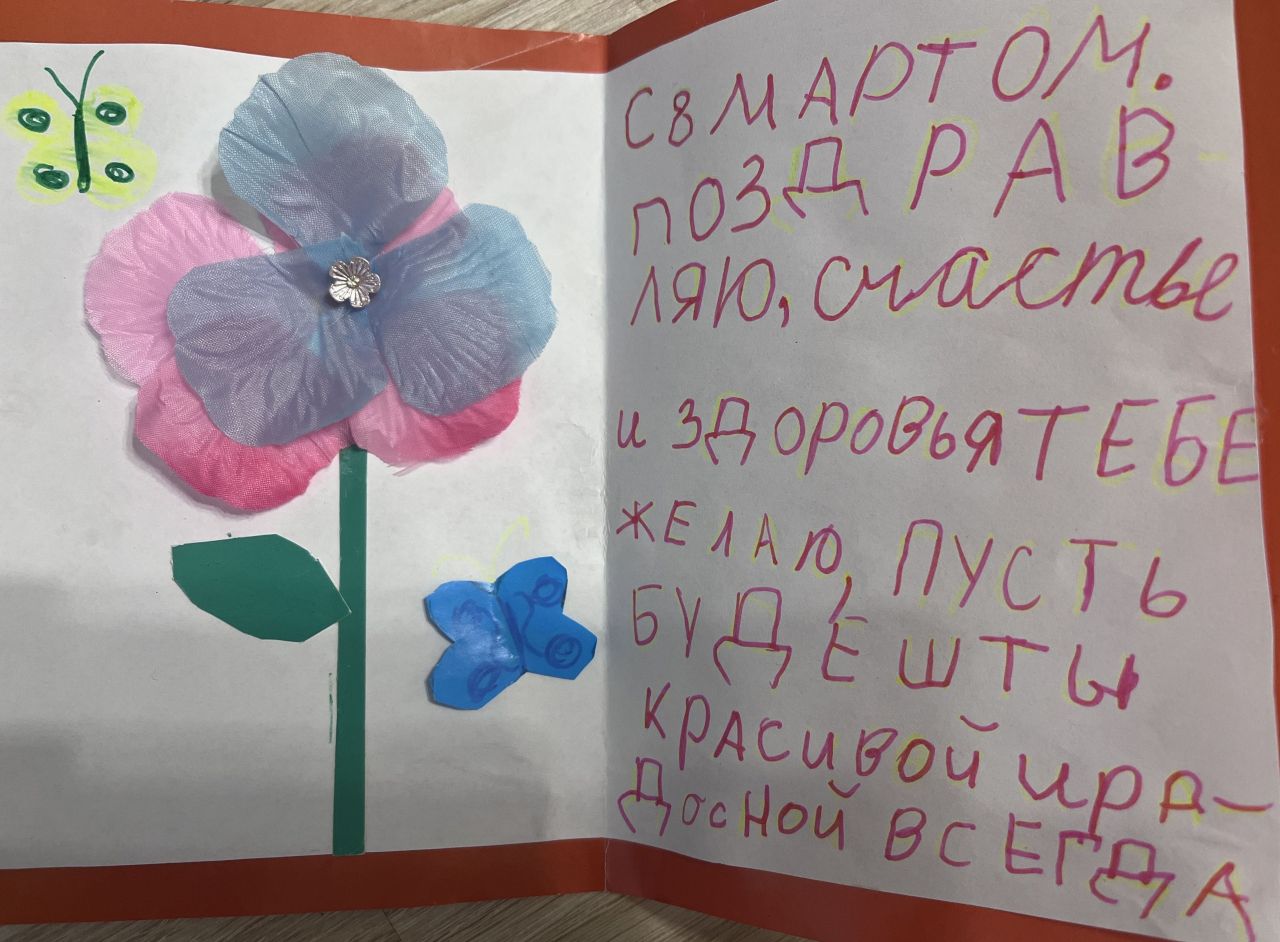 С 8 МАРТОМ.
ПОЗДРАВ-
ЛЯЮ, счастье
и здоровья ТЕБЕ
ЖЕЛАЮ, ПУСТЬ
БУДЕШ ТЫ
КРАСИВОЙ И РА-
ДОСНОЙ ВСЕГДА